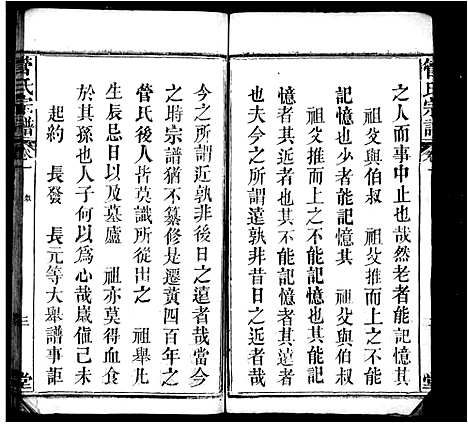 管氏宗譜 卷一
之人而事中止也哉然老者能記憶其
祖父與伯叔 祖父推而上之不能
記憶也少者能記憶其 祖父與伯叔
祖父推而上之不能記憶也其能記
憶者孰孰其不能記憶者孰孰
也夫今之所謂遠孰非昔日之近者哉
今之所謂近孰非後日之遠者哉當今
之時宗譜猶不纂修是遷黃四百年之
管氏後人皆莫識所從出之 祖舉凡
生辰忌日以及墓廬 祖亦莫得血食
於其孫也人子何以為心哉歲值己未
起約 長發 長元等大舉譜事詎
管氏宗譜 卷一
三
堂